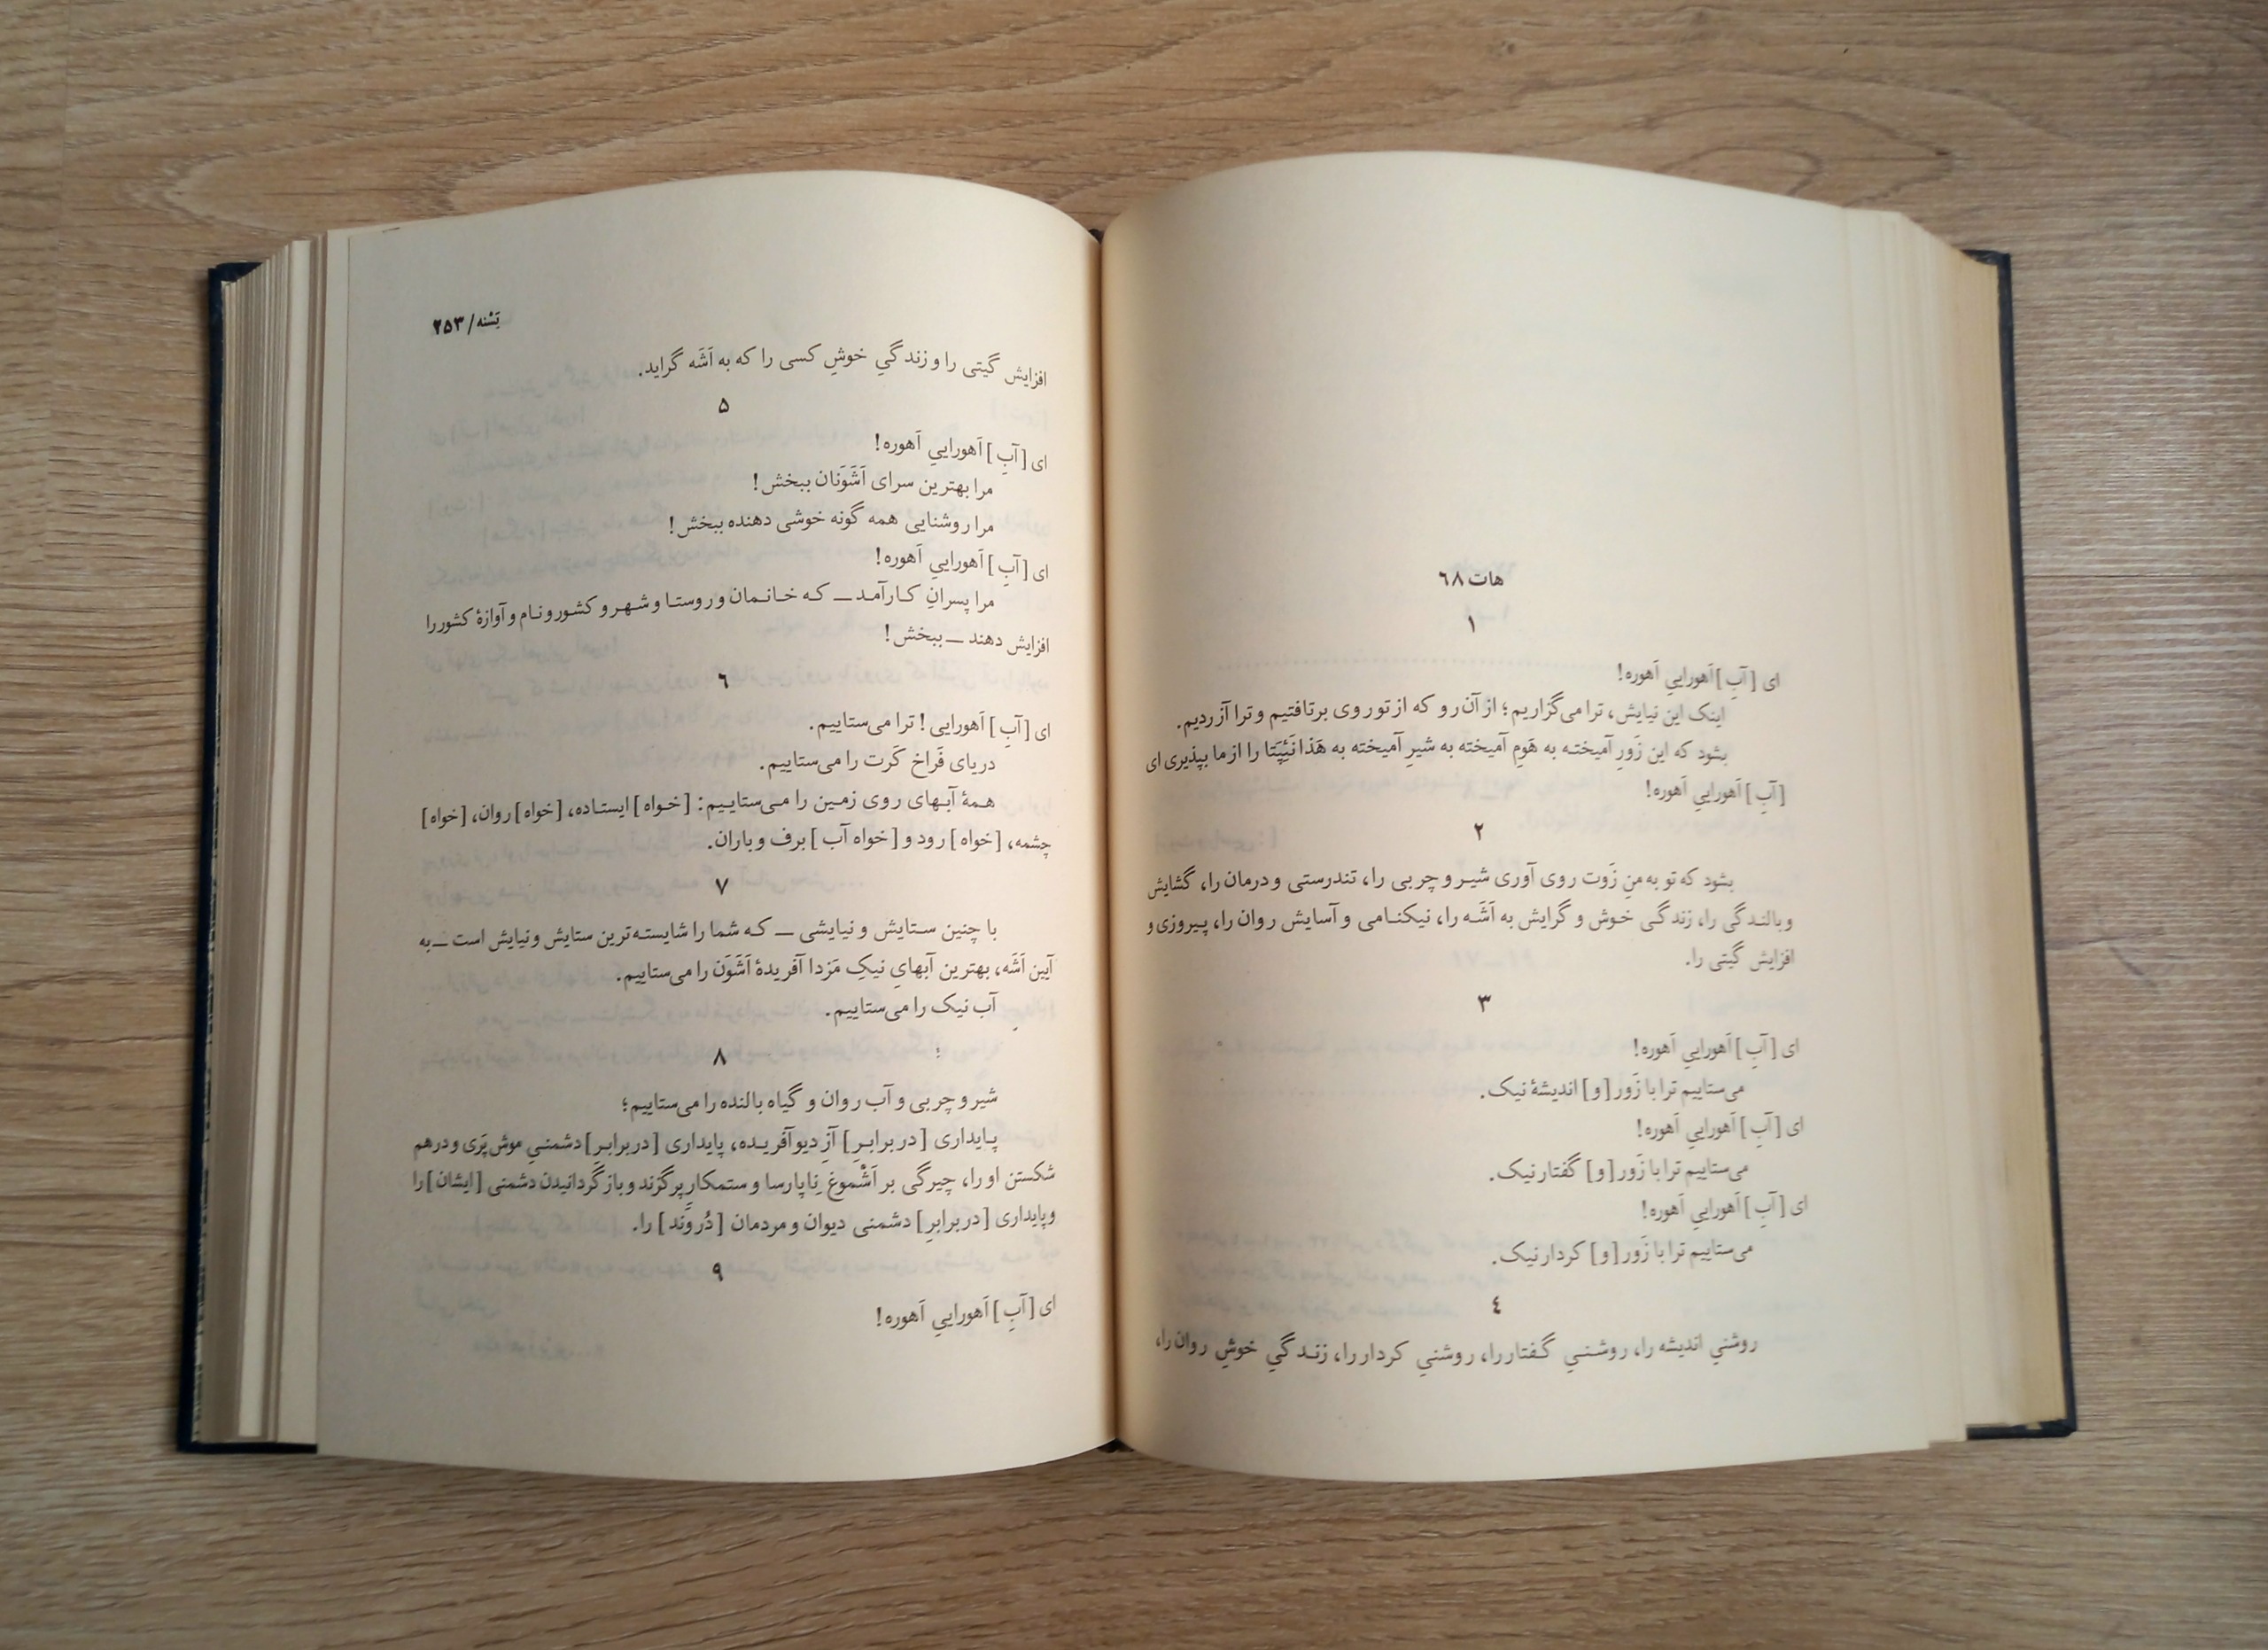 هات ٦٨
١
ای [آبِ] اَهوراییِ اَهوره!
اینک این نیایش، ترا می‌گزاریم؛ از آن رو که از تو روی برتافتیم و ترا آزردیم.
بشود که این زَورِ آمیخته به هَومِ آمیخته به شیرِ آمیخته به هَذانَئِپَتا را از ما بپذیری ای
[آبِ] اَهوراییِ اَهوره!
٢
بشود که تو به منِ زَوت روی آوری شیر و چربی را، تندرستی و درمان را، گشایش
و بالندگی را، زندگی خوش و گرایش به اَشَه را، نیکنامی و آسایش روان را، پیروزی و
افزایش گیتی را.
٣
ای [آبِ] اَهوراییِ اَهوره!
می‌ستاییم ترا با زَور [و] اندیشهٔ نیک.
ای [آبِ] اَهوراییِ اَهوره!
می‌ستاییم ترا با زَور [و] گفتار نیک.
ای [آبِ] اَهوراییِ اَهوره!
می‌ستاییم ترا با زَور [و] کردار نیک.
٤
روشنیِ اندیشه را، روشنیِ گفتار را، روشنیِ کردار را، زندگیِ خوشِ روان را،
یَسْنه/۲۵۳
افزایش گیتی را و زندگیِ خوشِ کسی را که به اَشَه گراید.
۵
ای [آبِ] اَهوراییِ اَهوره!
مرا بهترین سرای اَشَوَنان ببخش!
مرا روشنایی همه گونه خوشی دهنده ببخش!
ای [آبِ] اَهوراییِ اَهوره!
مرا پسرانِ کارآمد ــ که خانمان و روستا و شهر و کشور و نام و آوازهٔ کشور را
افزایش دهند ــ ببخش!
٦
ای [آبِ] اَهورایی! ترا می‌ستاییم.
دریای فَراخ کَرت را می‌ستاییم.
همهٔ آبهای روی زمین را می‌ستاییم: [خواه] ایستاده، [خواه] روان، [خواه]
چشمه، [خواه] رود و [خواه آب] برف و باران.
٧
با چنین ستایش و نیایشی ــ که شما را شایسته‌ترین ستایش و نیایش است ــ به
آیین اَشَه، بهترین آبهایِ نیکِ مَزدا آفریدهٔ اَشَوَن را می‌ستاییم.
آب نیک را می‌ستاییم.
٨
شیر و چربی و آب روان و گیاه بالنده را می‌ستاییم؛
پایداری [در برابرِ] آزِ دیو آفریده، پایداری [در برابرِ] دشمنیِ موش پَری و درهم
شکستن او را، چیرگی بر اَشْموغِ ناپارسا و ستمکارِ پرگزند و باز گردانیدن دشمنی [ایشان] را
و پایداری [در برابرِ] دشمنی دیوان و مردمان [دُروَند] را.
٩
ای [آبِ] اَهوراییِ اَهوره!